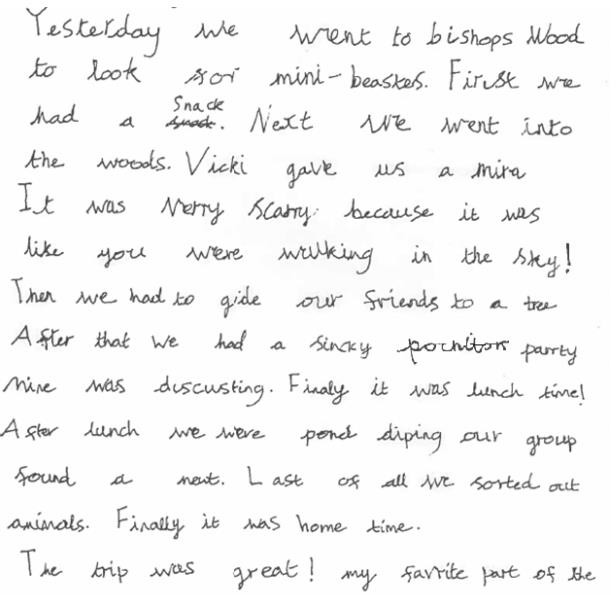 Yesterday we went to bishops Wood
to look for mini-beaskes. First we
had a snack. Next we went into
the woods. Vicki gave us a mira
It was Verry Scarry. because it was
like you were wallking in the sky!
Then we had to gide our friends to a tree
After that we had a sincky parrty
Mine was discusting. Finaly it was lunch time!
After lunch we were pond diping our group
found a neut. Last of all we sorted out
animals. Finally it was home time.
The trip was great! my favrite part of the